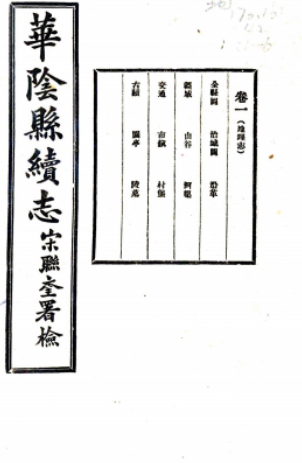 華陰縣續志 宋聯奎署檢
卷一（地理志）
全縣圖 治城圖 沿革
疆域 山谷 河渠
交通 市鎮 村堡
古蹟 園亭 陵墓